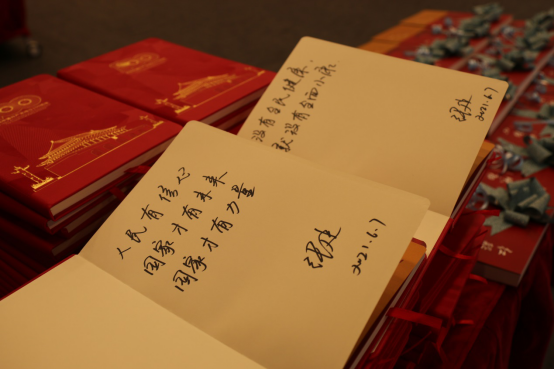 没有全民健康,
就没有全面小康
2021.6.7
人民有信心
国家才有未来
国家才有力量
2021.6.7
100